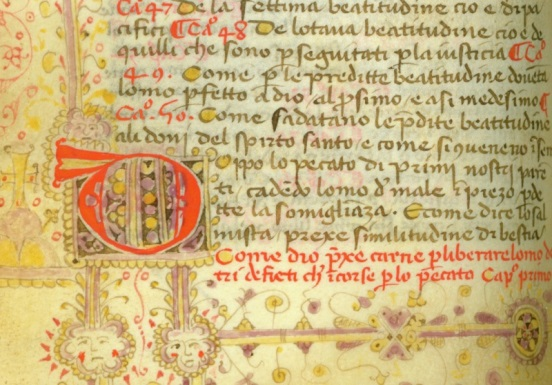 Ca°. 47 De la settima beatitudine cio e di pa
cifici ¶ Ca°. 48 De lotava beatitudine cio e de
quilli che sono pseguitati p la iusticia ¶ Ca°
49. Come p le preditte beatitudine doveta
lomo pfetto a dio, al psimo, e a si medesimo ¶
Ca°. 50. Come se adatano le pdite beatitudine
ali doni del spirto santo, e come si
Doppo lo pecato di primi nostri pare
ti, cadēdo lomo d' male ī piezo pde
tte la somigliāza. E come dice lo sal
mista prexe similitudine di bestia
Come dio pxe carne p liberare lomo d
tri defieti ch' īcorse p lo pecato Cap° primo